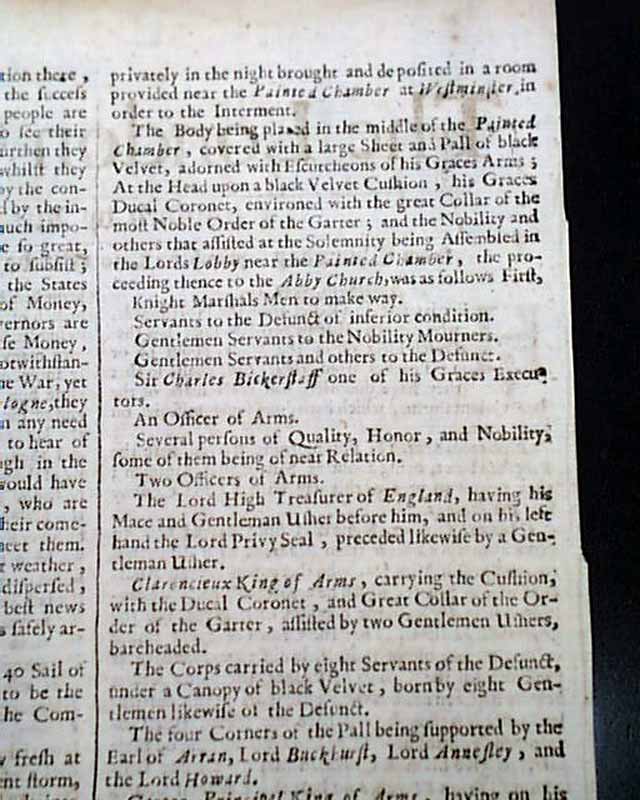 tion there,
the succefs
people are
to see their
further they
whilst they
by the con-
d by the in-
much impo-
e so great,
to subsist;
the States
of Money,
vernors are
se Money,
otwithstan-
he War, yet
logne, they
n any need
to hear of
ugh in the
would have
, who are
heir come-
meet them.
r weather,
dispersed,
best news
s safely ar-
40 Sail of
to be the
he Com-
y fresh at
ent storm,
privately in the night brought and deposited in a room
provided near the Painted Chamber at Westminster, in
order to the Interment.
The Body being placed in the middle of the Painted
Chamber, covered with a large Sheet and Pall of black
Velvet, adorned with Escutcheons of his Graces Arms;
At the Head upon a black Velvet Cushion, his Graces
Ducal Coronet, environed with the great Collar of the
most Noble Order of the Garter; and the Nobility and
others that assisted at the Solemnity being Assembled in
the Lords Lobby near the Painted Chamber, the pro-
ceeding thence to the Abby Church, was as follows First,
Knight Marshals Men to make way.
Servants to the Defunct of inferior condition.
Gentlemen Servants to the Nobility Mourners.
Gentlemen Servants and others to the Defunct.
Sir Charles Bickerstaff one of his Graces Execu-
tors.
An Officer of Arms.
Several persons of Quality, Honor, and Nobility,
some of them being of near Relation.
Two Officers of Arms.
The Lord High Treasurer of England, having his
Mace and Gentleman Usher before him, and on his left
hand the Lord Privy Seal, preceded likewise by a Gen-
tleman Usher.
Clarencieux King of Arms, carrying the Cushion,
with the Ducal Coronet, and Great Collar of the Or-
der of the Garter, assisted by two Gentlemen Ushers,
bareheaded.
The Corps carried by eight Servants of the Defunct,
under a Canopy of black Velvet, born by eight Gen-
tlemen likewise of the Defunct.
The four Corners of the Pall being supported by the
Earl of Arran, Lord Buckhurst, Lord Annesley, and
the Lord Howard.
Principal King of Arms, having on his